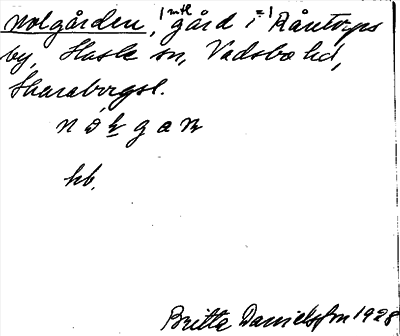 Nolgården, 1 mtl gård i =1 Råntorps
by, Hasle sn, Vadsbo hd,
Skarabgsl.
hb.
Britta Danielsson 1928